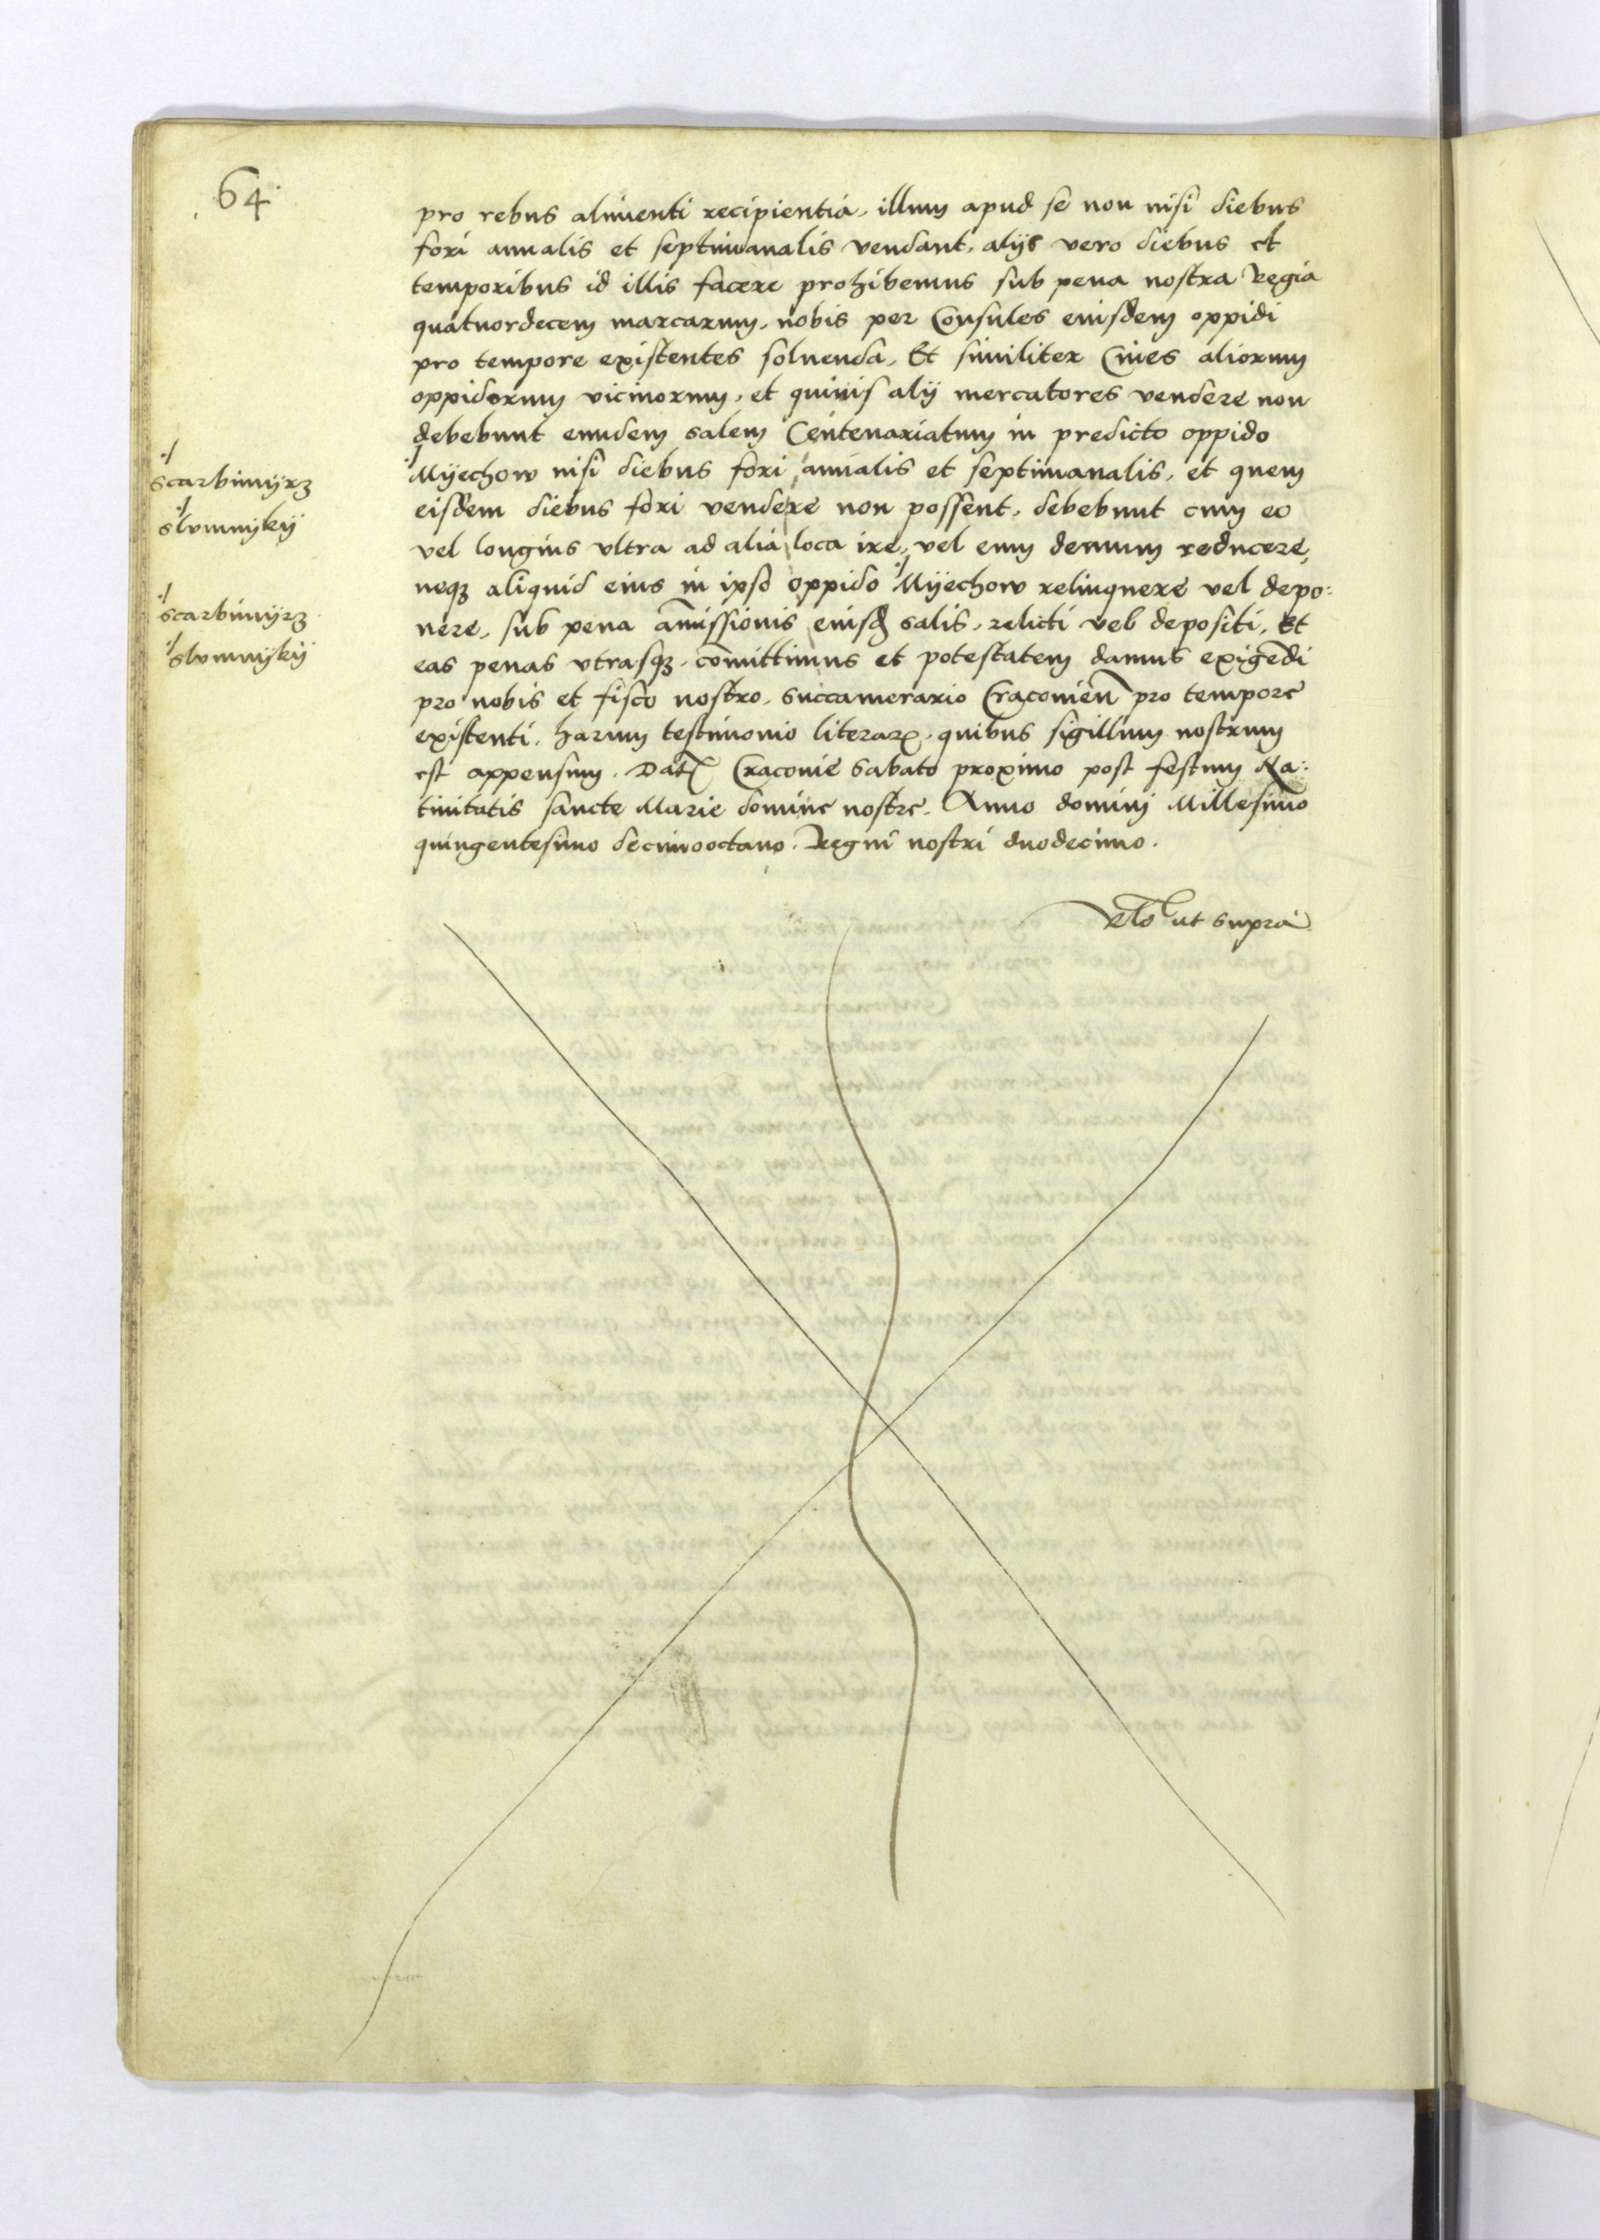 64
pro rebus alimenti recipientia, illum apud se non nisi diebus
fori annalis et septimanalis vendant, alijs vero diebus et
temporibus id illis facere prohibemus sub pena nostra Regia
quatuordecem marcarum, nobis per Consules eiusdem oppidi
pro tempore existentes soluenda, Et similiter Ciues aliorum
oppidorum vicinorum, et quiuis alij mercatores vendere non
debebunt eundem salem Centenariatum in predicto oppido
Mÿechow nisi diebus fori annalis et septimanalis, et quem
eisdem diebus fori vendere non possent, debebunt cum eo
vel longius vltra ad alia loca ire, vel eum demum reducere,
neqʒ aliquid eius in ipso oppido Mÿechow relinquere vel depo:
nere, sub pena amissionis eiusd salis, relicti vel depositi, Et
eas penas vtrasqʒ comittimus et potestatem damus exigēdi
pro nobis et fisco nostro, Succamerario Cracovien̄ pro tempore
existenti, harum testimonio literarꝝ, quibus sigillum nostrum
est appensum. Dat Cracovie Sabato proximo post festum Na:
tiuitatis sancte Marie domine nostre. Anno domini Millesimo
quingentesimo decimooctauo. Regni nostri duodecimo.
ut supra
Scarbimÿrʒ
Slomnÿkÿ
Scarbimÿrʒ
Slomnÿkÿ